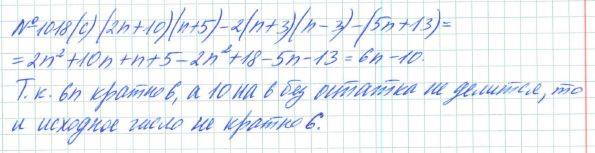 №1018(с) (2n+10)(n+5)-2(n+3)(n-3)-(5n+13)=
=2n²+10n+n+5-2n²+18-5n-13=6n-10.
Т.к. 6n кратно 6, а 10 на 6 без остатка не делится, то
и исходное число не кратно 6.